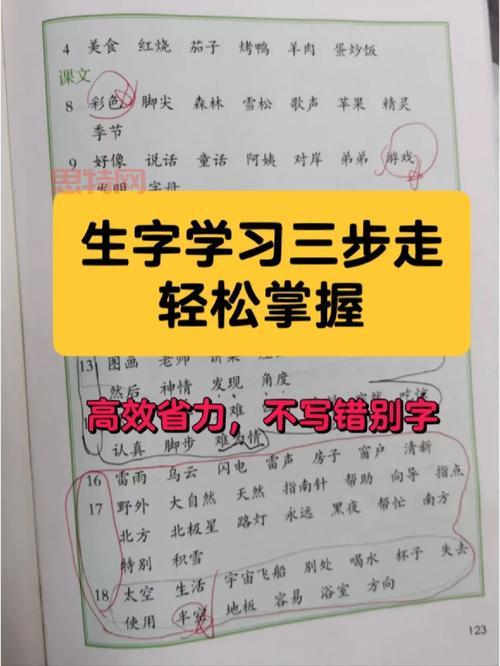 4 美食 红烧 茄子 烤鸭 羊肉 蛋炒饭
课文
8 彩色 脚尖 森林 雪松 歌声 苹果 精灵
季节
9 好像 说话 童话 阿姨 对岸 弟弟 游戏
发明 字母
思特网
生字学习三步走
轻松掌握
13 图画 老师 讲桌
然后 神情 发现 角度
高效省力，不写错别字
认真 脚步 难为情
16 雷雨 乌云 闪电 雷声 房子 窗户 清新
17 野外 大自然 天然 指南针 帮助 向导 指点
北方 北极星 路灯 永远 黑夜 帮忙 南方
特别 积雪
18 太空 生活 宇宙飞船 别处 喝水 杯子 失去
使用 半空 地板 容易 浴室 方向
123